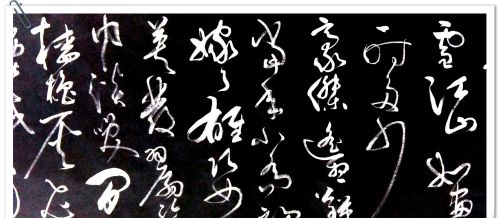 雪江山如畫
一時多少
豪傑遙想
當年小喬初
嫁了雄姿
英發羽扇綸
巾談笑間
檣櫓灰飛